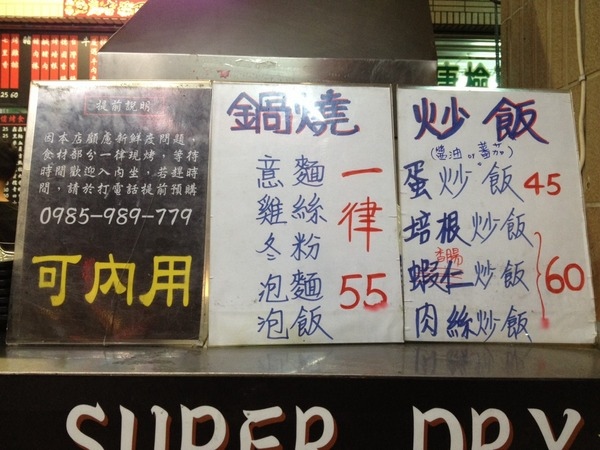 提前說明
因本店顧慮新鮮度問題,
食材部分一律現烤，等待
時間歡迎入內坐，若趕時
間，請於打電話提前預購
0985-989-779
可內用
鍋燒
意麵
雞絲
冬粉
泡麵
泡飯
一律
55
炒飯
(醬油or蕃茄)
蛋炒飯 45
培根炒飯
香腸
蝦仁炒飯
肉絲炒飯
60
SUPER DRY